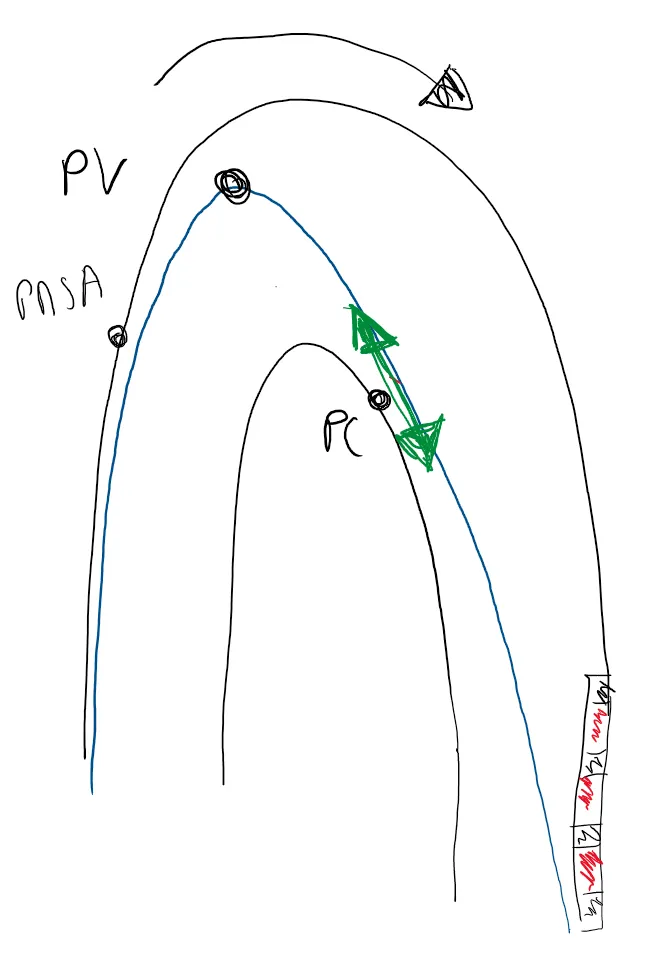 PV
PNSA
PC